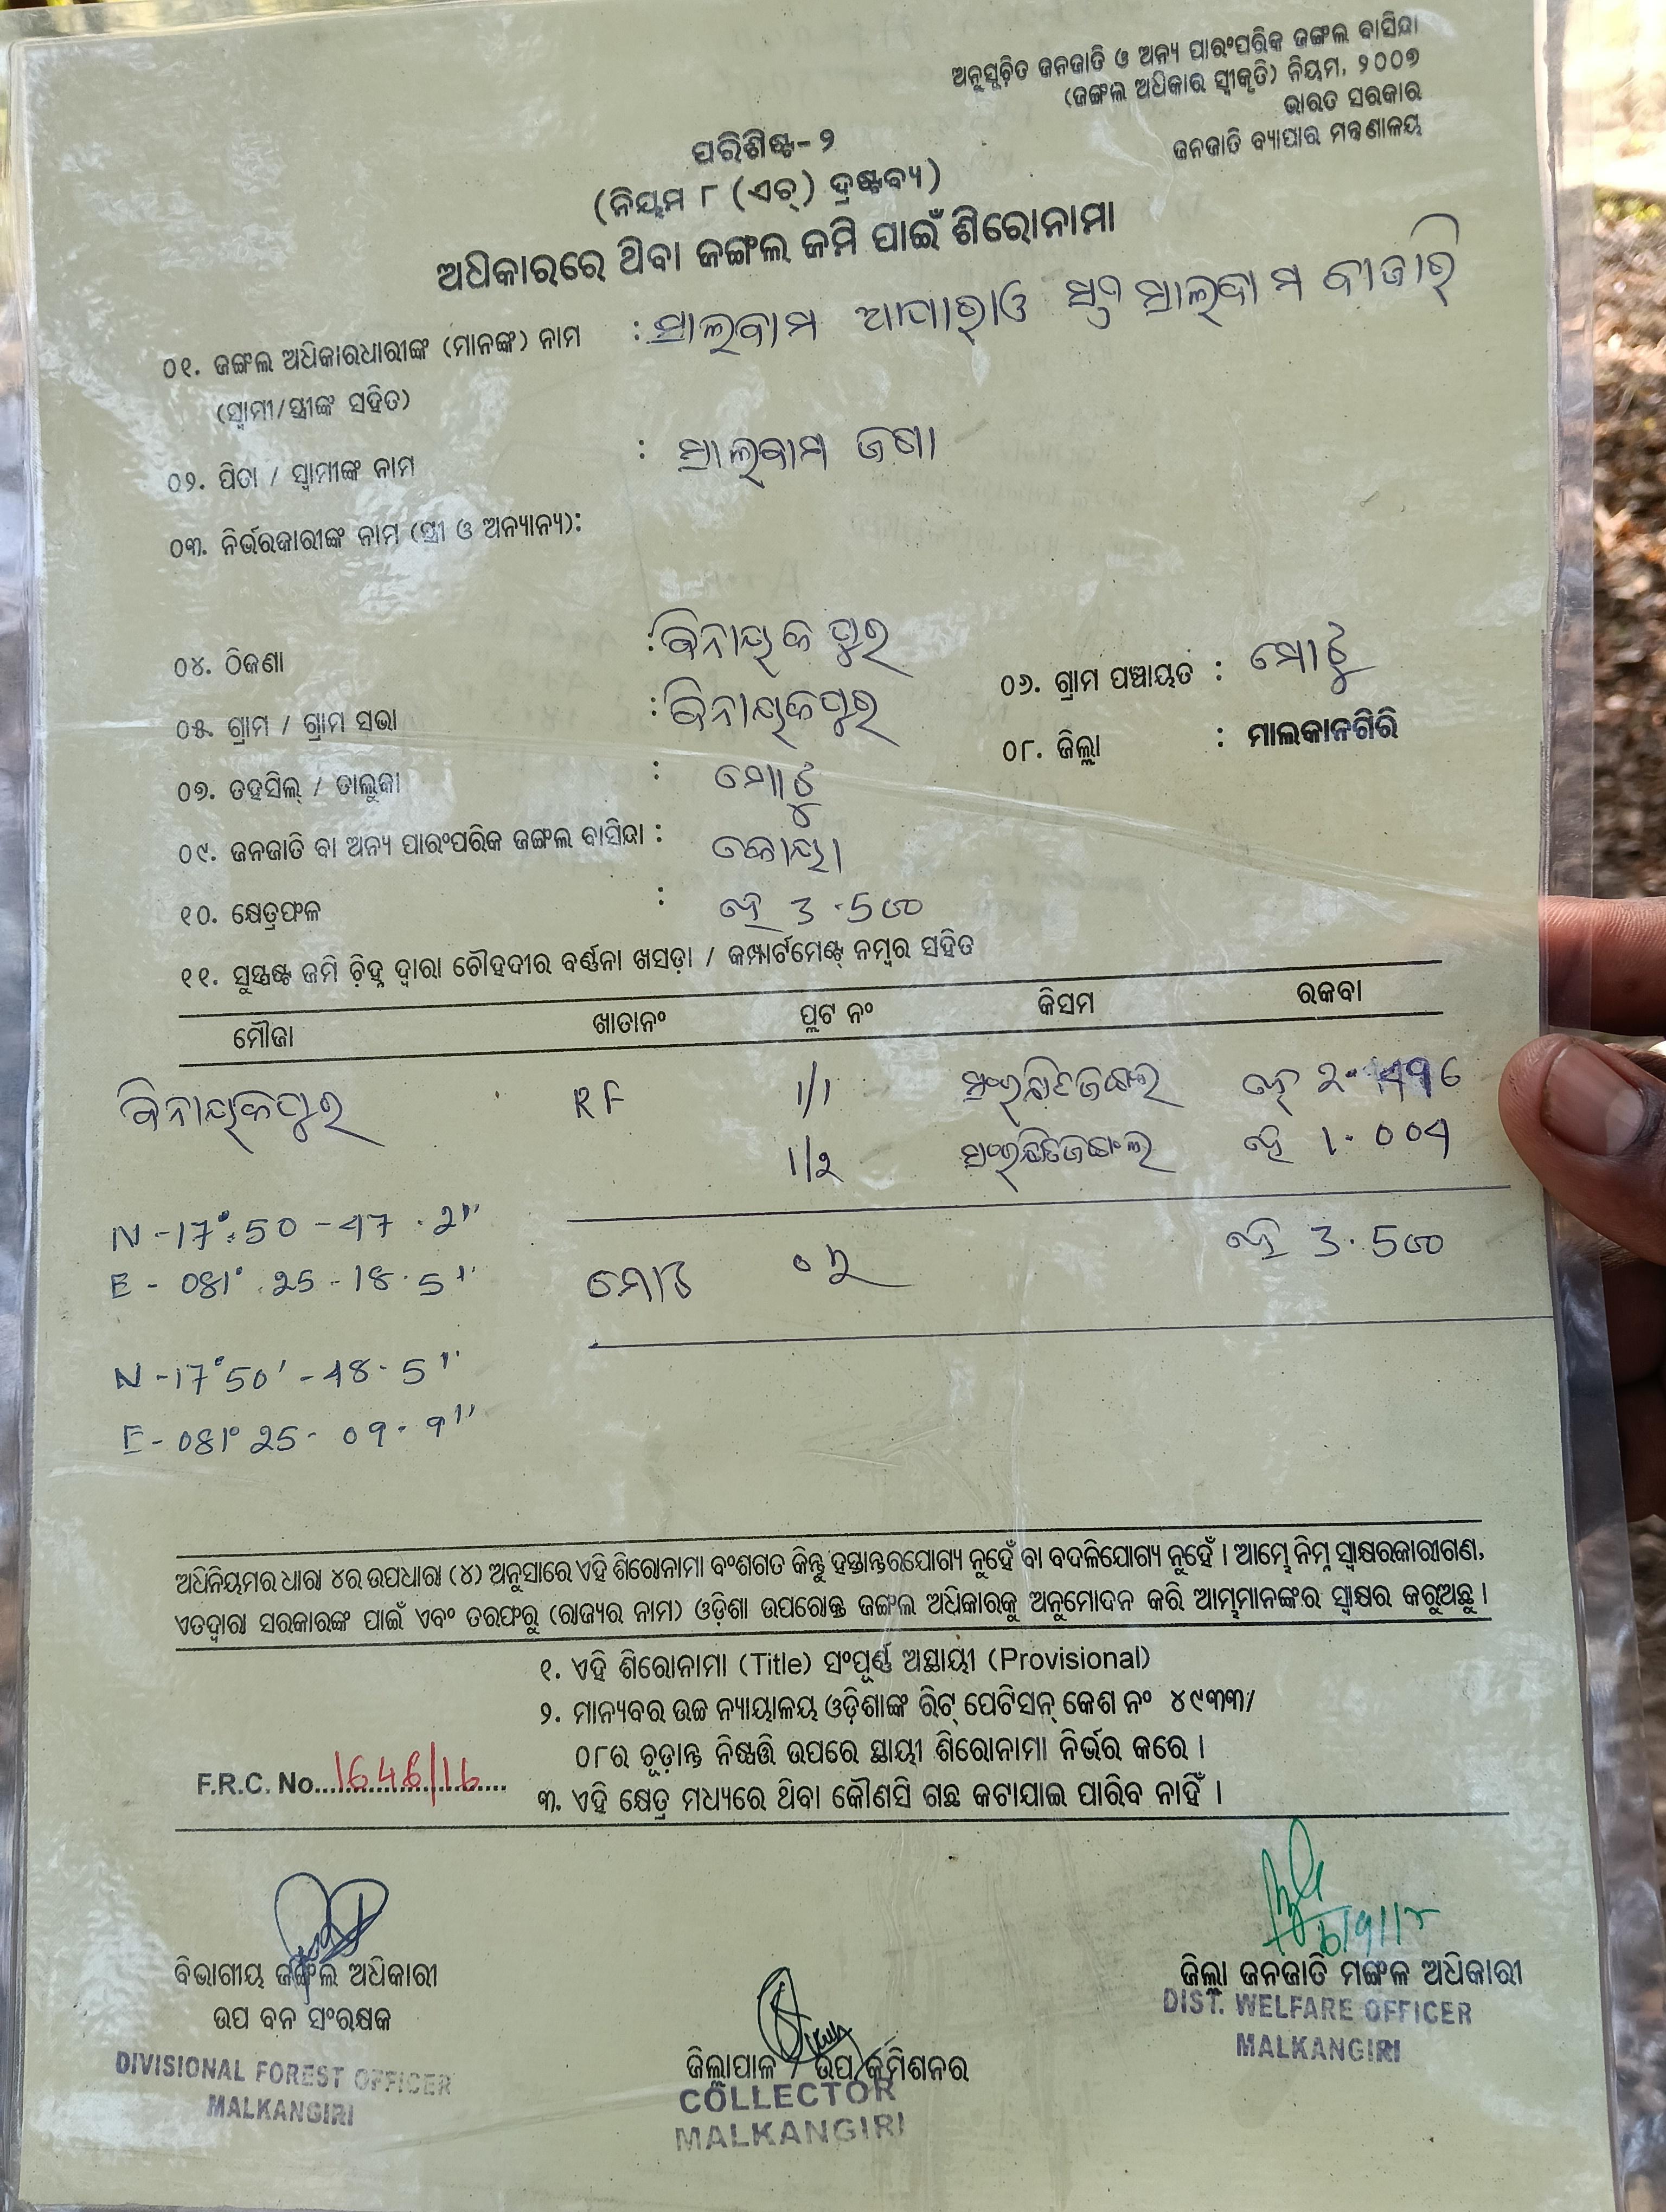 ଅନୁସୂଚିତ ଜନଜାତି ଓ ଅନ୍ୟ ପାରଂପରିକ ଜଙ୍ଗଲ ବାସିନ୍ଦା
(ଜଙ୍ଗଲ ଅଧିକାର ସ୍ୱୀକୃତି) ନିୟମ, ୨୦୦୭
ଭାରତ ସରକାର
ଜନଜାତି ବ୍ୟାପାର ମନ୍ତ୍ରଣାଳୟ
ପରିଶିଷ୍ଟ-୨
(ନିୟମ ୮ (ଏଚ୍) ଦ୍ରଷ୍ଟବ୍ୟ)
ଅଧିକାରରେ ଥିବା ଜଙ୍ଗଲ ଜମି ପାଇଁ ଶିରୋନାମା
୦୧. ଜଙ୍ଗଲ ଅଧିକାରଧାରୀଙ୍କ (ମାନଙ୍କ) ନାମ :
(ସ୍ୱାମୀ/ସ୍ତ୍ରୀଙ୍କ ସହିତ)
୦୨. ପିତା / ସ୍ୱାମୀଙ୍କ ନାମ :
୦୩. ନିର୍ଭରକାରୀଙ୍କ ନାମ (ସ୍ତ୍ରୀ ଓ ଅନ୍ୟାନ୍ୟ):
୦୪. ଠିକଣା : ବିନାୟକପୁର
୦୫. ଗ୍ରାମ / ଗ୍ରାମ ସଭା : ବିନାୟକପୁର
୦୬. ଗ୍ରାମ ପଞ୍ଚାୟତ : ମୋଟୁ
୦୭. ତହସିଲ୍ / ତାଲୁକା : ମୋଟୁ
୦୮. ଜିଲ୍ଲା : ମାଲକାନଗିରି
୦୯. ଜନଜାତି ବା ଅନ୍ୟ ପାରଂପରିକ ଜଙ୍ଗଲ ବାସିନ୍ଦା : କୋୟା
୧୦. କ୍ଷେତ୍ରଫଳ : ହେ 3.5୦୦
୧୧. ସୁସ୍ପଷ୍ଟ ଜମି ଚିହ୍ନ ଦ୍ୱାରା ଚୌହଦୀର ବର୍ଣ୍ଣନା ଖସଡ଼ା / କମ୍ପାର୍ଟମେଣ୍ଟ୍ ନମ୍ବର ସହିତ
ମୌଜା ଖାତାନଂ ପ୍ଲଟ ନଂ କିସମ ରକବା
ବିନାୟକପୁର RF 1/1
1/୨ ହେ
N-17° 50-47.2"
E-081° 25-18.5"
ମୋଟ ୦୨ ହେ 3.5୦୦
N-17°50'-48.5"
E-081° 25-
ଅଧିନିୟମର ଧାରା ୪ର ଉପଧାରା (୪) ଅନୁସାରେ ଏହି ଶିରୋନାମା ବଂଶଗତ କିନ୍ତୁ ହସ୍ତାନ୍ତରଯୋଗ୍ୟ ନୁହେଁ ବା ବଦଳିଯୋଗ୍ୟ ନୁହେଁ । ଆମ୍ଭେ ନିମ୍ନ ସ୍ୱାକ୍ଷରକାରୀଗଣ,
ଏତଦ୍ୱାରା ସରକାରଙ୍କ ପାଇଁ ଏବଂ ତରଫରୁ (ରାଜ୍ୟର ନାମ) ଓଡ଼ିଶା ଉପରୋକ୍ତ ଜଙ୍ଗଲ ଅଧିକାରକୁ ଅନୁମୋଦନ କରି ଆମ୍ଭମାନଙ୍କର ସ୍ୱାକ୍ଷର କରୁଅଛୁ ।
୧. ଏହି ଶିରୋନାମା (Title) ସଂପୂର୍ଣ୍ଣ ଅସ୍ଥାୟୀ (Provisional)
୨. ମାନ୍ୟବର ଉଚ୍ଚ ନ୍ୟାୟାଳୟ ଓଡ଼ିଶାଙ୍କ ରିଟ୍ ପେଟିସନ୍ କେଶ ନଂ ୪୯୩୩/
୦୮ର ଚୂଡ଼ାନ୍ତ ନିଷ୍ପତ୍ତି ଉପରେ ସ୍ଥାୟୀ ଶିରୋନାମା ନିର୍ଭର କରେ ।
୩. ଏହି କ୍ଷେତ୍ର ମଧ୍ୟରେ ଥିବା କୌଣସି ଗଛ କଟାଯାଇ ପାରିବ ନାହିଁ ।
F.R.C. No.
ବିଭାଗୀୟ ଜଙ୍ଗଲ ଅଧିକାରୀ
ଉପ ବନ ସଂରକ୍ଷକ
DIVISIONAL FOREST OFFICER
MALKANGIRI
ଜିଲ୍ଲାପାଳ / ଉପ କମିଶନର
COLLECTOR
MALKANGIRI
ଜିଲ୍ଲା ଜନଜାତି ମଙ୍ଗଳ ଅଧିକାରୀ
DIST. WELFARE OFFICER
MALKANGIRI